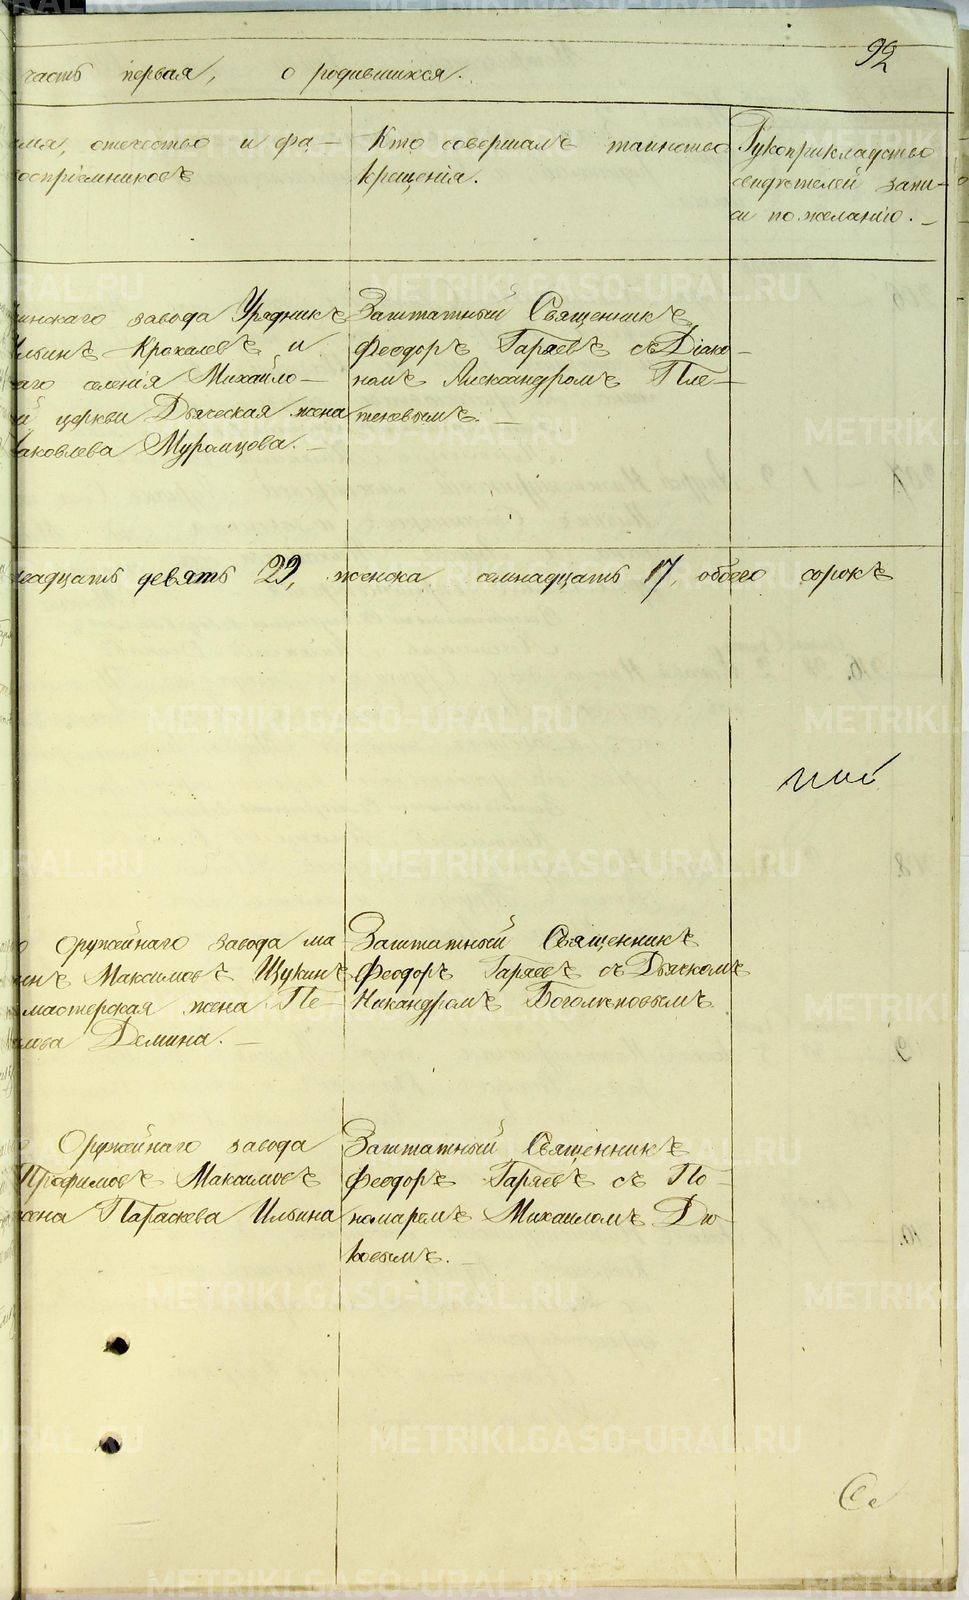 92
часть первая, о родившихся.
имя, отечество и фа-
воспріемниковъ
Кто совершалъ таинство
крещенія.
Рукоприкладство
свидѣтелей запи-
си по желанію.
инскаго завода Урядникъ
Ильинъ Крохалевъ и
аго селенія Михайло-
й церкви Дьяческая жена
Яковлева Муромцова.
Заштатный Священникъ
Феодоръ Гаряевъ съ Діако-
номъ Александромъ Пле-
теневымъ.
надцать девять 29, женска семнадцать 17, обоего сорокъ
Оружейнаго завода ма
инъ Максимовъ Щукинъ
мастерская жена Пе-
лова Демина.
Заштатный Священникъ
Феодоръ Гаряевъ съ Дьячкомъ
Никандромъ Боголѣповымъ
Оружейнаго завода
Трофимовъ Максимовъ
жена Параскева Ильина
Заштатный Священникъ
Феодоръ Гаряевъ съ По-
номаремъ Михаиломъ Дю
ковымъ.
METRIKI.GASO-URAL.RU